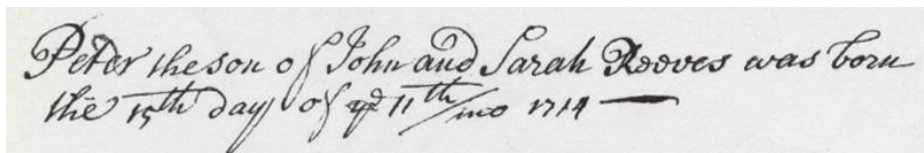 Peter the son of John and Sarah Reeves was born
the 15th day of ye 11th/mo 1714